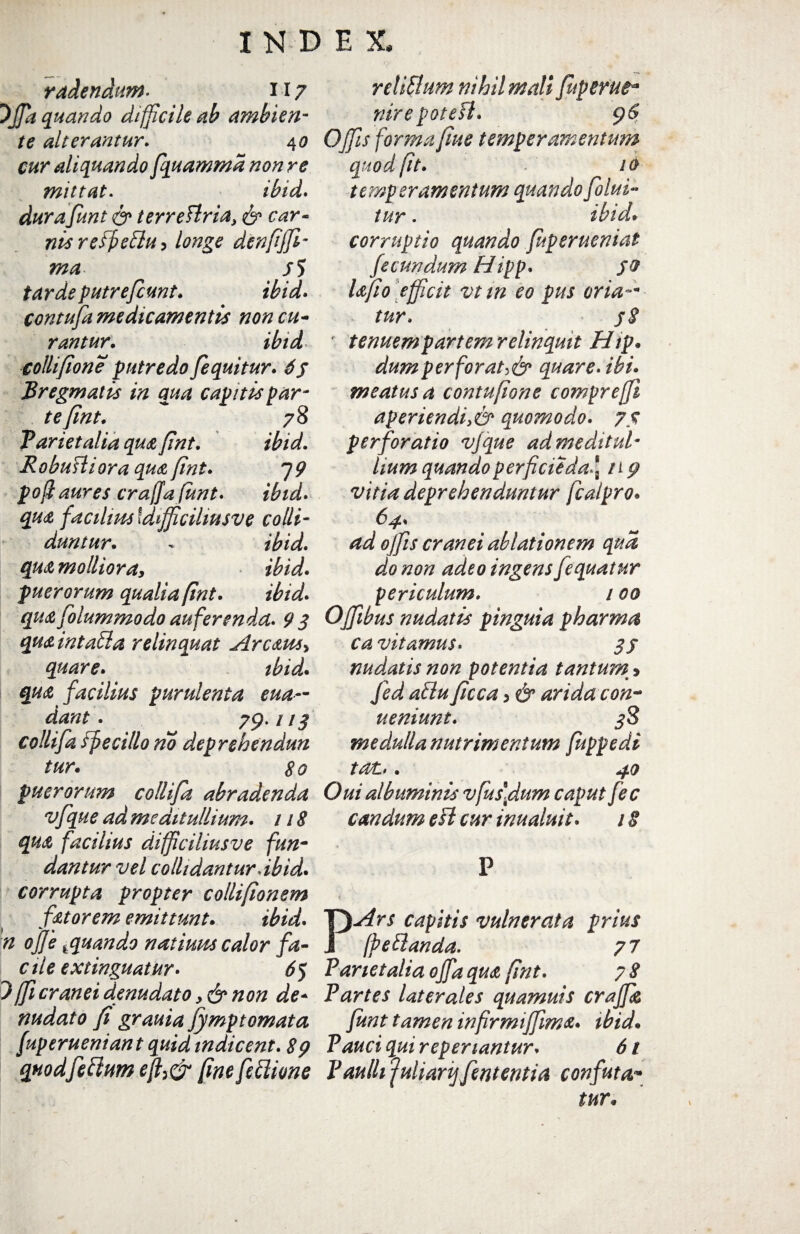 INDEX.
radendum. 117
Ossa quando difficile ab ambien-
te alterantur. 40
cur aliquando squammã non re
mittat. ibid.
dura sunt & terrestria, & car-
nis respectu, longe densissi-
ma 55
tarde putrescunt. ibid.
contusa medicamentis non cu-
rantur. ibid
collisione putredo sequitur. 65
Bregmatis in qua capitis par-
te sint. 78
Parietalia quæ sint. ibid.
Robustiora quæ sint. 79
post aures crassa sunt. ibid.
quæ facilius difficiliusve colli-
duntur. ibid.
quæ molliora, ibid.
puerorum qualia sint. ibid.
quæ solummodo auferenda. 93
quæ intacta relinquat Arcæus,
quare. ibid.
quæ facilius purulenta eua-
dant. 79. 113
collisa specillo nõ deprehendun
tur. 80
puerorum collisa abradenda
vsque ad meditullium. 118
quæ facilius difficiliusve fun-
dantur vel collidantur. ibid.
corrupta propter collisionem
fætorem emittunt. ibid.
n osse quando natiuus calor fa-
cile extinguatur. 65
Ossi cranei denudato, & non de-
nudato si grauia symptomata
superueniant quid indicent. 89
quod sectum est, & sine sectione
relictum nihil mali superue-
nire potest. 96
Ossis forma siue temperamentum
quod sit. 10
temperamentum quando solui-
tur. ibid.
corruptio quando superueniat
secundum Hipp. 50
læsio efficit vt in eo pus oria-
tur. 58
tenuem partem relinquit Hip.
dum perforat, & quare. ibi.
meatus a contusione compressi
aperiendi, & quomodo. 75
perforatio vsque ad meditul-
lium quando perficiẽda. 119
vitia deprehenduntur scalpro.
64.
ad ossis cranei ablationem quã
do non adeo ingens sequatur
periculum. 100
Ossibus nudatis pinguia pharma
ca vitamus. 35
nudatis non potentia tantum,
sed actu sicca, & arida con-
ueniunt. 38
medulla nutrimentum suppedi
tat. 40
Oui albuminis vsus dum caput sec
candum est cur inualuit. 18
P
PArs capitis vulnerata prius
spectanda. 77
Parietalia ossa quæ sint. 78
Partes laterales quamuis crassæ
sunt tamen infirmissimæ. ibid.
Pauci qui reperiantur. 61
Paulli Juliarij sententia confuta-
tur.